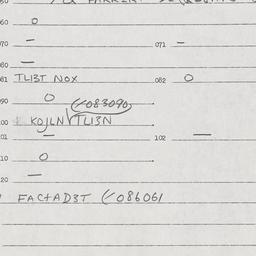 60 O
70 — 071 —
80 —
81 TLI3T NOX 082 O
90 O
(-083090)
00 KOJLN TLI3N
01 — 102 —
10 O
20 —
FACTAD3T (-086061